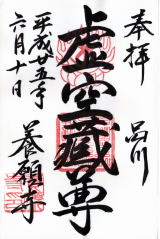 奉拝
品川
虚空蔵尊
平成廿五年
六月十日
養願寺